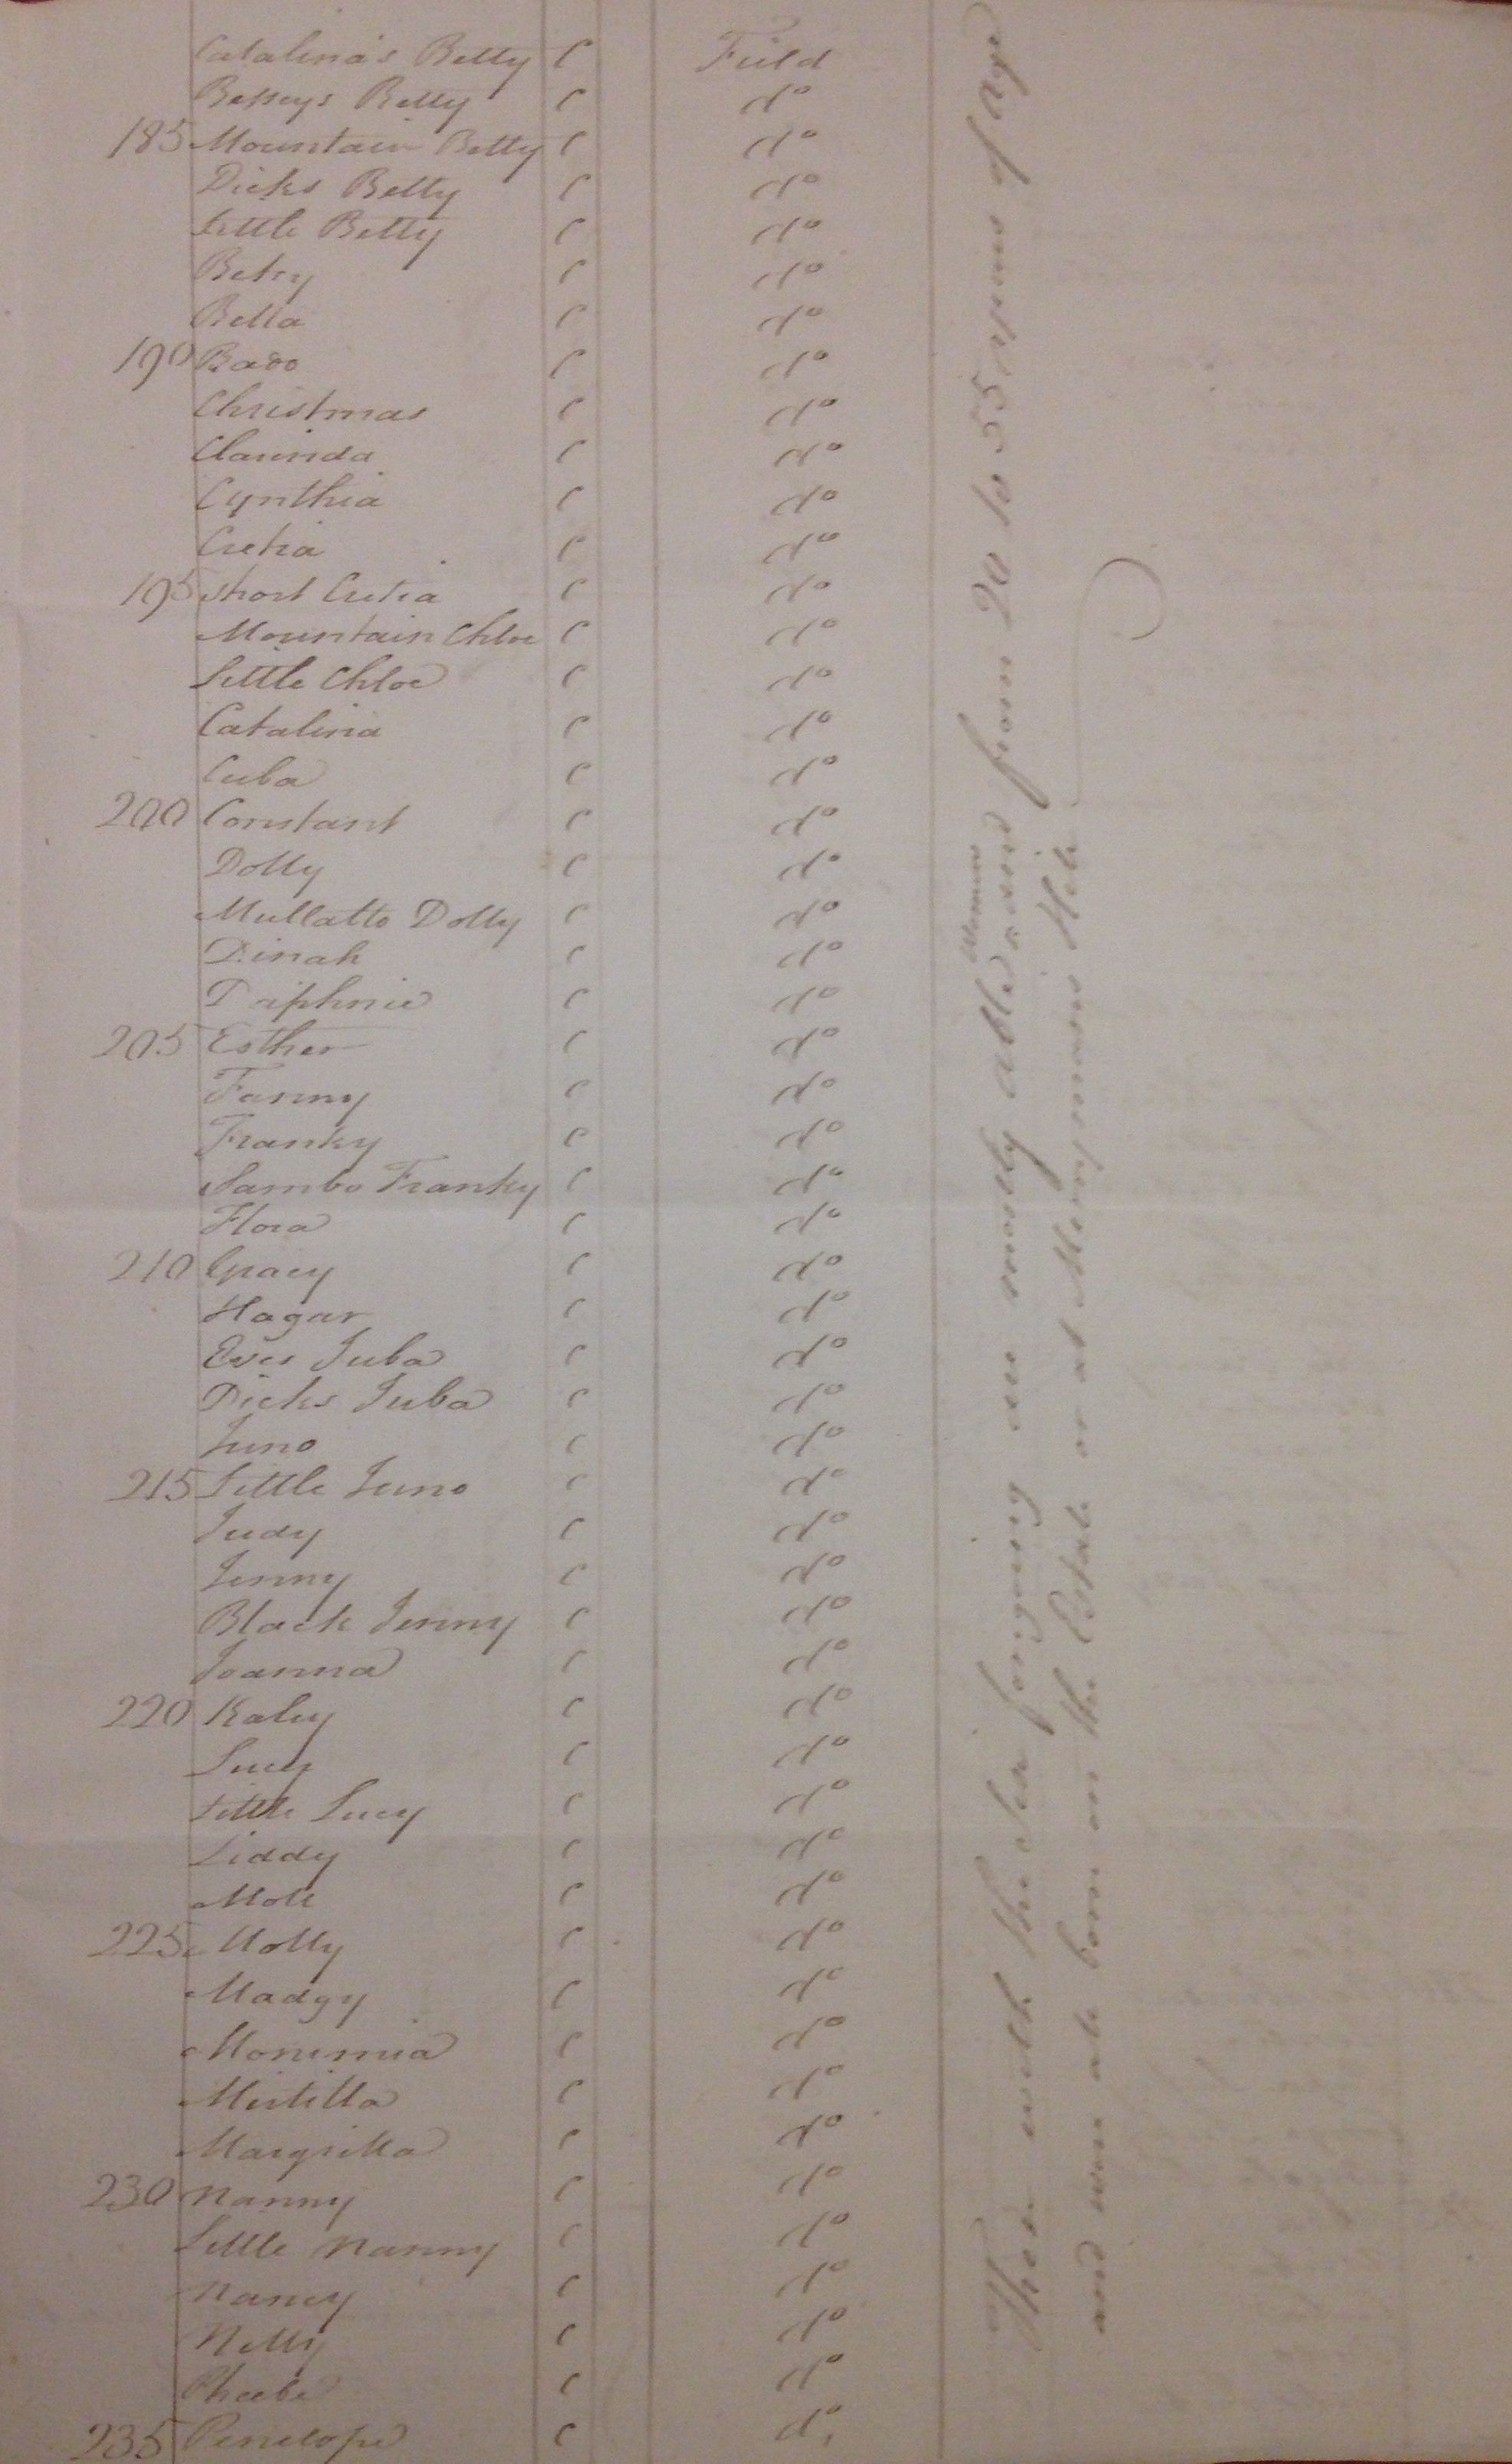 Catalina's Betty C Field
Besseys Betty C do
185 Mountain Betty C do
Dicks Betty C do
Little Betty C do
Betsy C do
Bella C do
190 Bado C do
Christmas C do
Clarinda C do
Cynthia C do
Cretia C do
195 Short Cretia C do
Mountain Chloe C do
Little Chloe C do
Catalina C do
Cuba C do
200 Constant C do
Dolly C do
Mullatto Dolly C do
Dinah C do
Daiphnie C do
205 Esther C do
Fanny C do
Franky C do
Sambo Franky C do
Flora C do
210 Gracy C do
Hagar C do
Eves Juba C do
Dicks Juba C do
Juno C do
215 Little Juno C do
Judy C do
Jenny C do
Black Jenny C do
Joanna C do
220 Katey C do
Lucy C do
Little Lucy C do
Liddy C do
Moll C do
225 Molly C do
Madgy C do
Monimia C do
Mirtilla C do
Margrilla C do
230 Nanny C do
Little Nanny C do
Nancy C do
Nelly C do
Phoebe C do
235 Penelope C do
These with the six forgoing are mostly able women and from 20 to 55 years of age
and were all born on the Estate or at Merrymans Hill